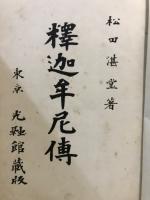 松田湛堂著
釋迦牟尼傳
東京 光融館藏版